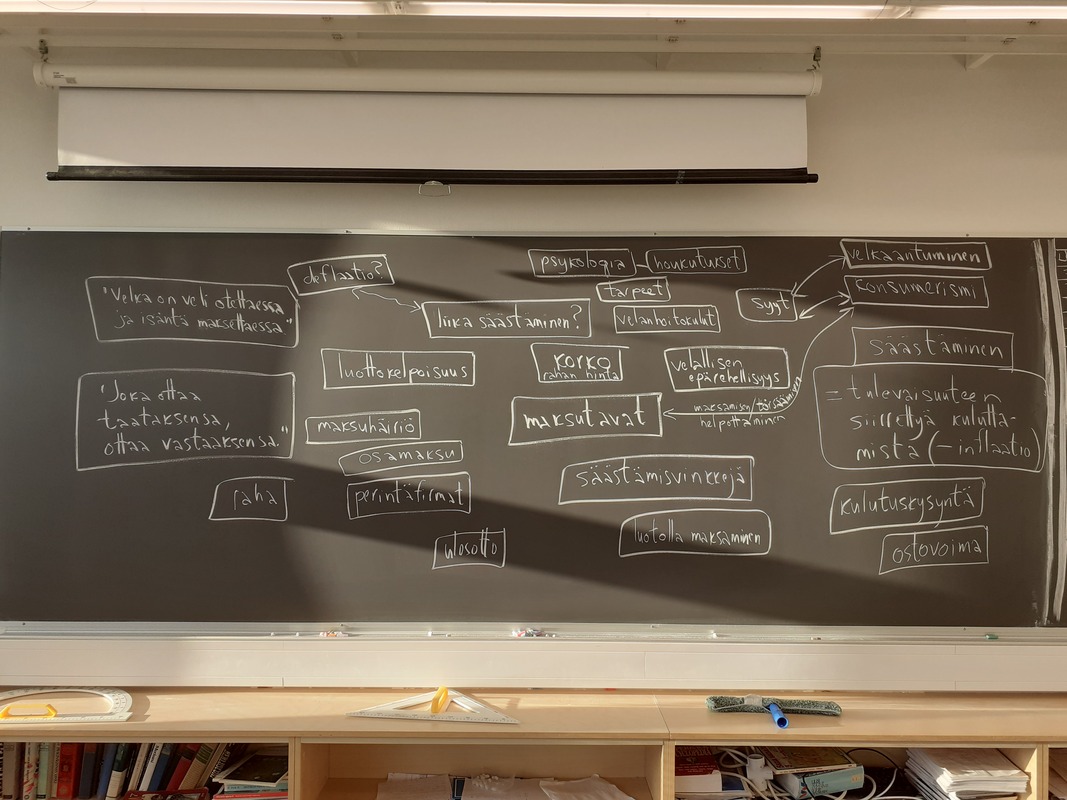 "Velka on veli otettaessa
ja isäntä maksettaessa"
deflaatio?
liika säästäminen?
psykologia
houkutukset
tarpeet
velanhoitokulut
syyt
velkaantuminen
konsumerismi
säästäminen
= tulevaisuuteen
siirrettyä kulutta-
mista (– inflaatio)
"Joka ottaa
taatakseensa,
ottaa vastaaksensa."
luottokelpoisuus
korko
rahan hinta
velallisen
epärehellisyys
maksutavat
maksamisen/törsäämisen
helpottaminen
maksuhäiriö
osamaksu
perintäfirmat
raha
ulosotto
säästämisvinkkejä
luotolla maksaminen
kulutuskysyntä
ostovoima